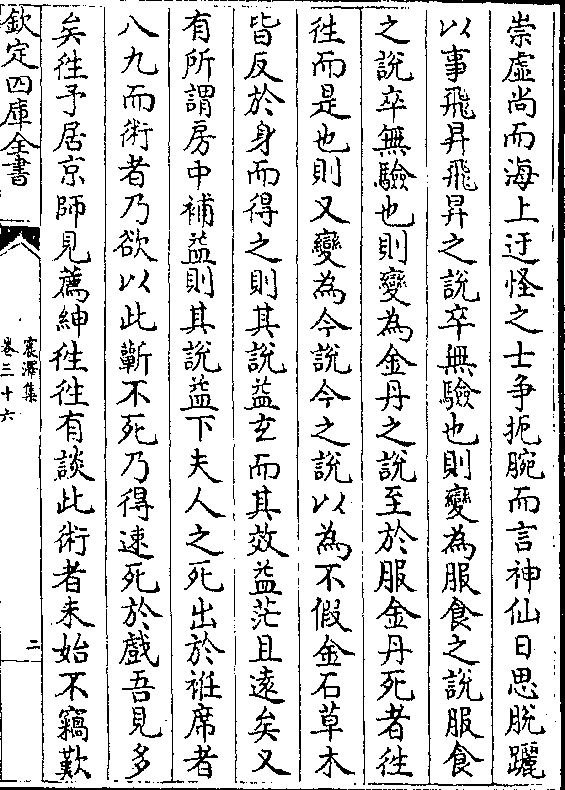 崇虚尚而海上迂怪之士争扼腕而言神仙日思脱躧
以事飛昇飛昇之說卒無驗也則變為服食之說服食
之說卒無驗也則變為金丹之說至於服金丹死者徃
徃而是也則又變為今說今之說以為不假金石草木
皆反於身而得之則其說益玄而其效益茫且遠矣又
有所謂房中補益則其說益下夫人之死出於袵席者
八九而術者乃欲以此蘄不死乃得速死於戲吾見多
矣徃予居京師見薦紳徃徃有談此術者未始不竊歎
欽定四庫全書
震澤集
卷三十六
二